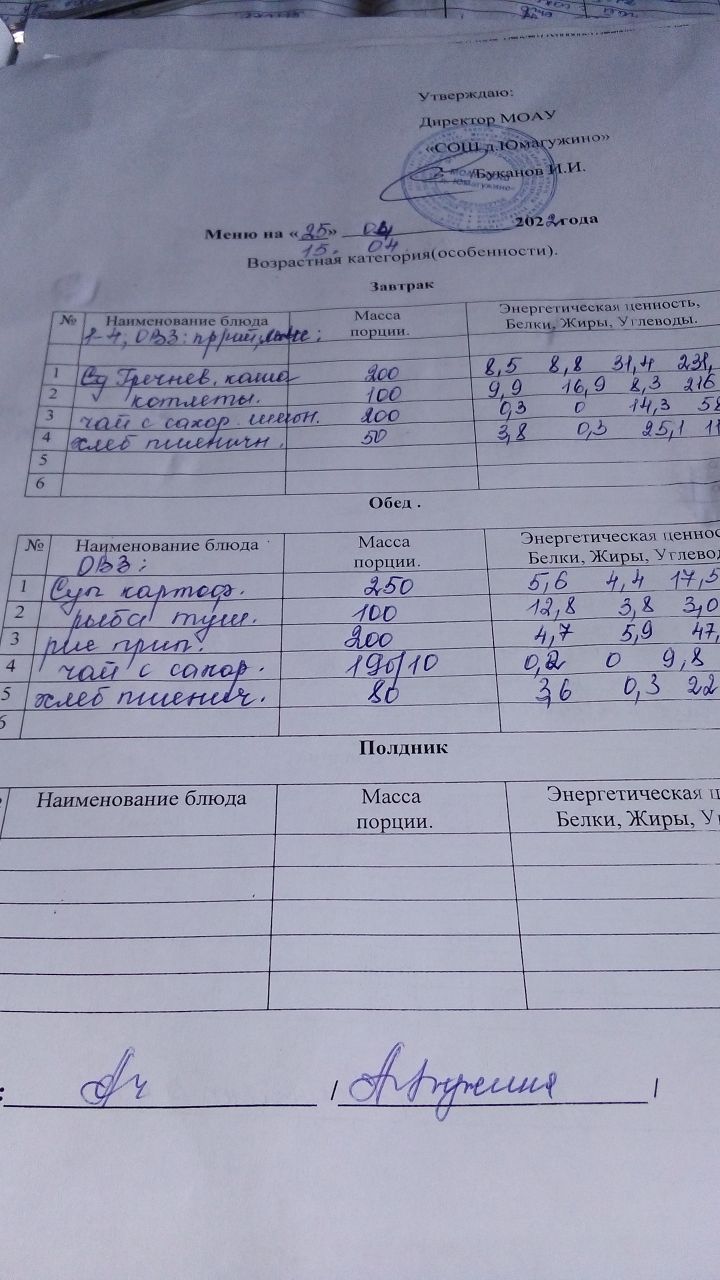 Утверждаю:
Директор МОАУ
«СОШ д.Юмагужино»
/Буканов И.И.
Меню на «25» 04 2022года
15. 04
Возрастная категория(особенности).
Завтрак
№ Наименование блюда Масса порции. Энергетическая ценность, Белки, Жиры, Углеводы.
1-4, ОВЗ:
1 Гречнев. каша 200 8,5 8,8 31,4 231,
2 котлеты. 100 9,9 16,9 8,3 216
3 чай с сахор. 200 0,3 0 14,3 58
4 хлеб пшеничн. 50 3,8 0,3 25,1 11
5
6
Обед .
№ Наименование блюда Масса порции. Энергетическая ценнос Белки, Жиры, Углевод
ОВЗ:
1 Суп картоф. 250 5,6 4,4 17,5
2 рыба туш. 100 12,8 3,8 3,0
3 рис прип. 200 4,7 5,9 47,
4 чай с сахор. 190/10 0,2 0 9,8
5 хлеб пшенич. 80 3,6 0,3 22
6
Полдник
Наименование блюда Масса порции. Энергетическая ц Белки, Жиры, Уг